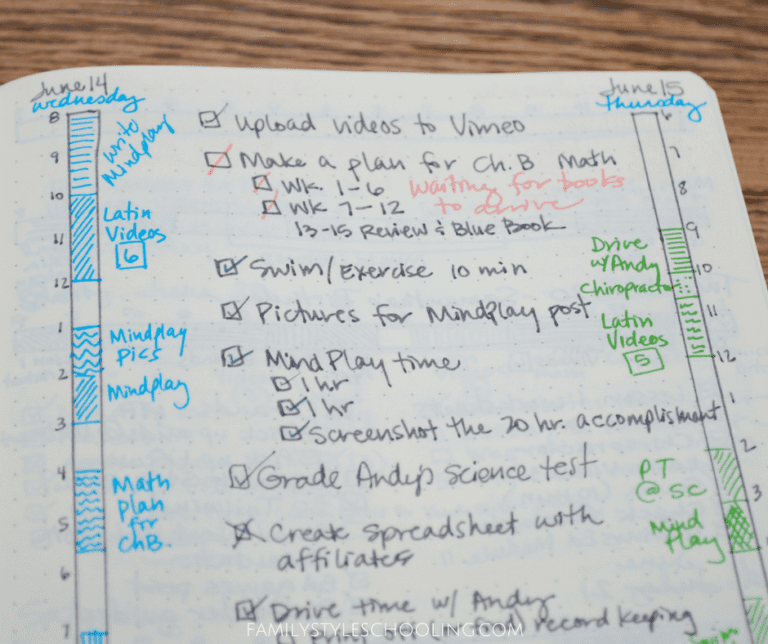 June 14
Wednesday
8
Write
Mindplay
9
10
Latin
Videos
6
11
12
1
Mindplay
Pics
2
Mindplay
3
4
Math
plan
for
Ch B.
5
6
7
Upload videos to Vimeo
Make a plan for Ch. B Math
Wk. 1-6 waiting for books
Wk 7-12 to arrive
13-15 Review & Blue Book
Swim/Exercise 10 min
Pictures for MindPlay post
MindPlay time
1 hr
1 hr
Screenshot the 20 hr. accomplisment
Grade Andy's Science test
Create Spreadsheet with
affiliates
Drive time w/ Andy
record keeping
June 15
Thursday
6
7
8
9
Drive
w/Andy
10
Chiropractor
11
Latin
Videos
5
12
1
2
PT
@ SC
3
Mind
Play
FAMILYSTYLESCHOOLING.COM